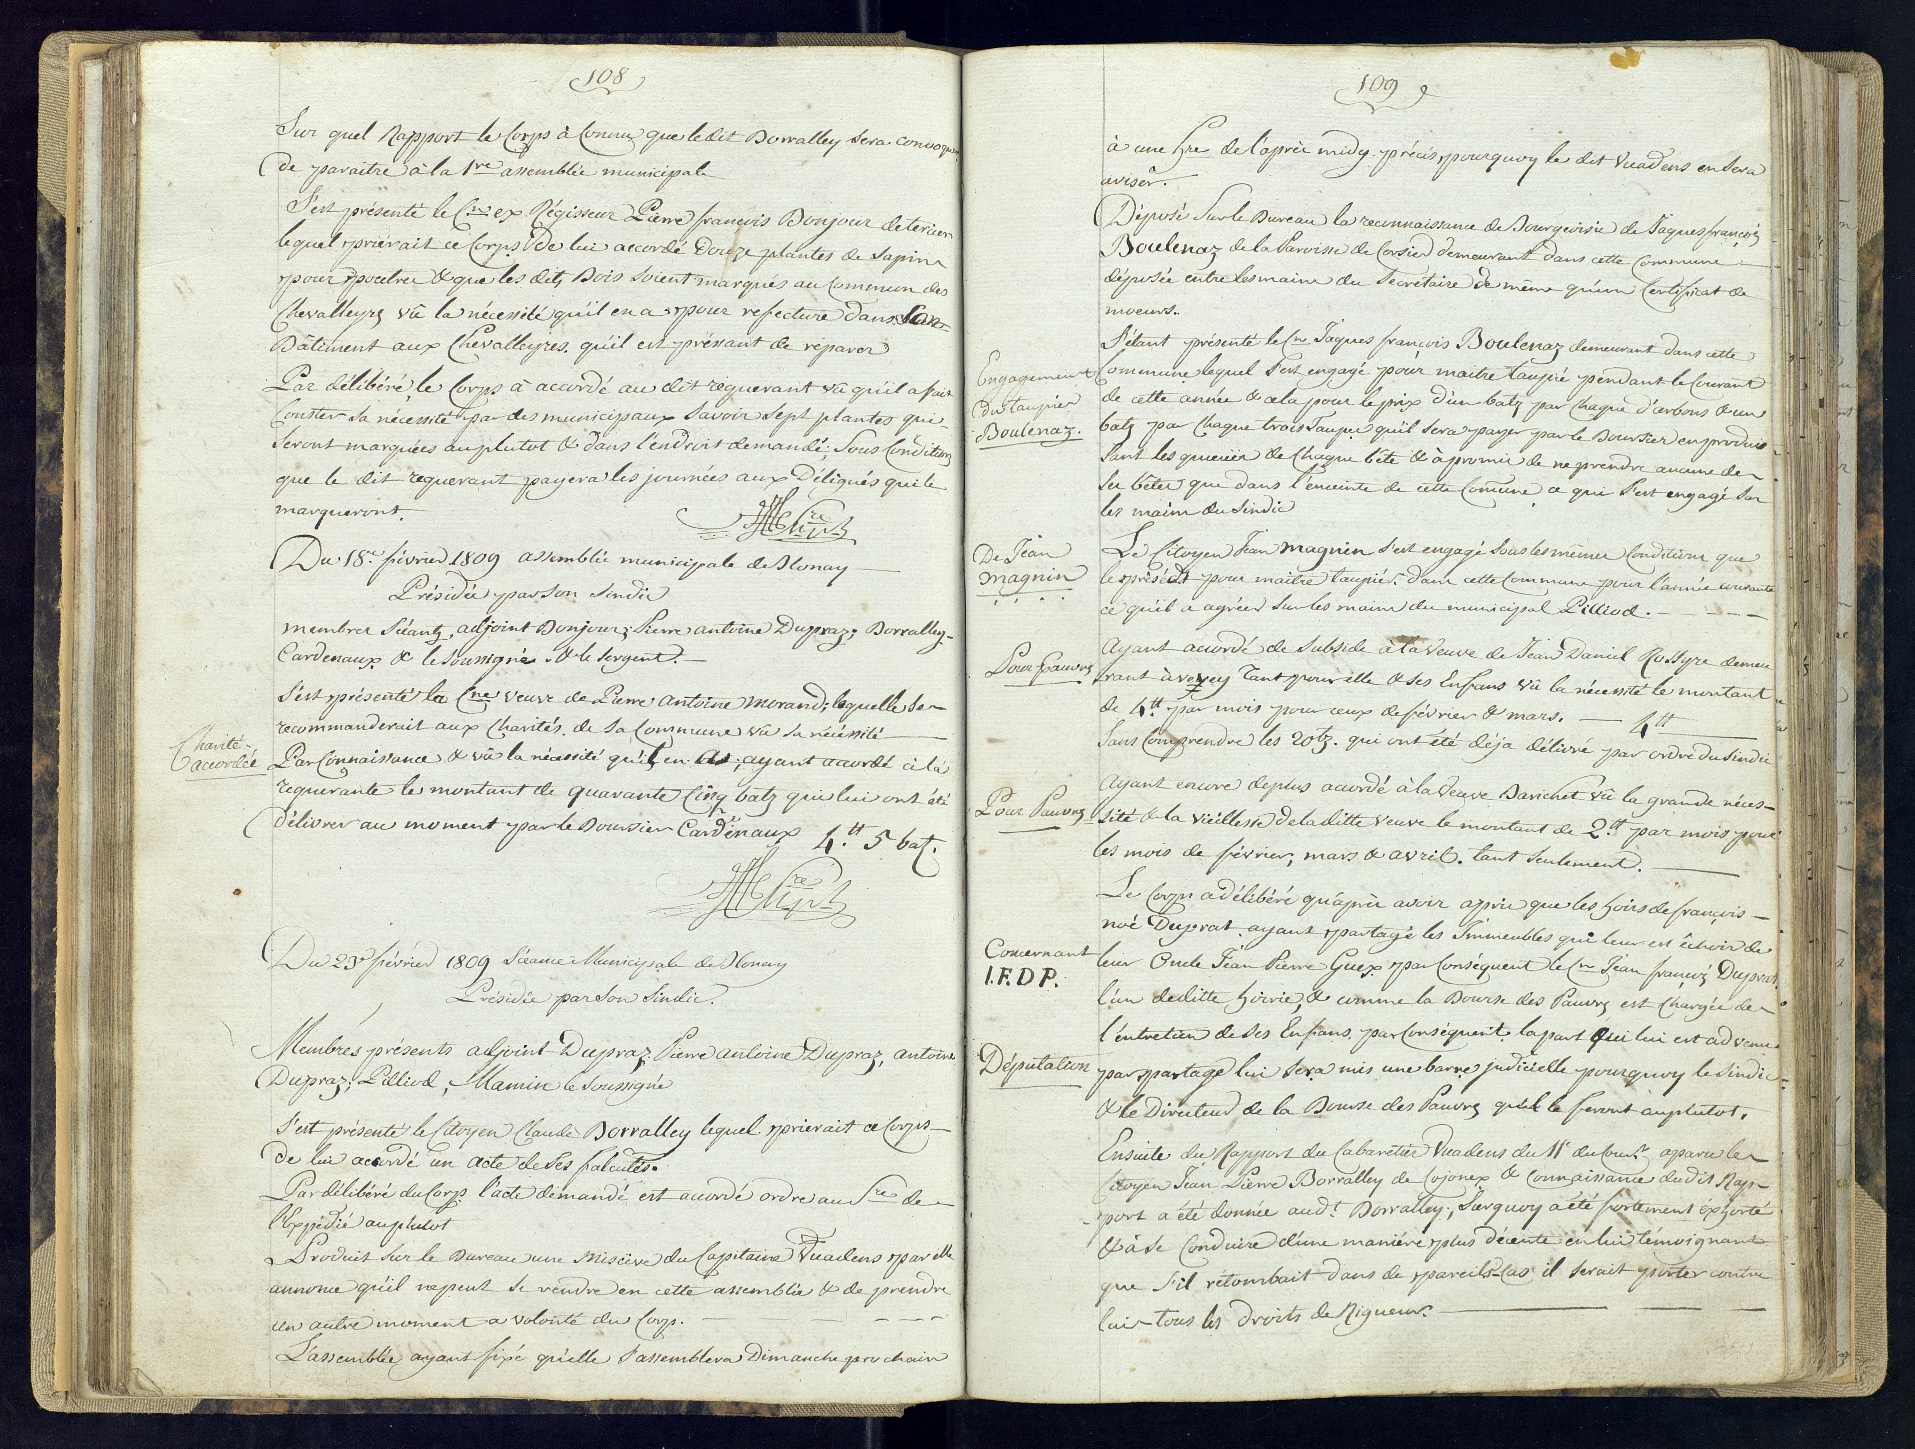 108
Sur quel Rapport le Corps à Connu que le dit Borralley sera convoqué
de paraitre à la 1.re assemblée municipale
S'est présenté le C.en ex Régisseur Pierre françois Bonjour de tercier
lequel prierait ce Corps De lui accordé Douze plantes de sapin
pour poutres & que les dits Bois soient marqués au Commun des
Chevalleyres vû la nécessité qu'il en a pour refecture dans Son
Bâtiment aux Chevalleyres. qu'il est préssant de réparer
Par délibéré, le Corps à accordé au dit requerant vû qu'il a fait
Conster sa nécessité par des municipaux Savoir Sept plantes qui
seront marquées au plutot & dans l'endroit demandé, Sous Condition
que le dit requerant payera les journées aux Délégués qui le
marqueront.
Du 18.e février 1809 assemblée municipale de Blonay
Présidée par son Sindic
membres Séants, adjoint Bonjour; Pierre antoine Dupraz; Borralley
Cardenaux & le Soussigné. & le sergent.
S'est présenté la C.ne veuve de Pierre Antoine Morand; laquelle se
recommanderait aux Charités de sa Commune vû sa nécéssité
Charité
accordée
Par Connaissance & vû la nécéssité qu'il en as, ayant accordé à la
requerante le montant de quarante Cinq batz qui lui ont été
délivrer au moment par le Boursier Cardénaux 4.tt 5 batz.
Du 23.e février 1809 Séance Municipale de Blonay
Présidée par Son Sindic.
Membres présents adjoint Dupraz, Pierre antoine Dupraz, antoine
Dupraz, Pilliod, Mamin le Soussigné
S'est présenté le Citoyen Claude Borralley lequel prierait ce Corps
de lui accordé un acte de Ses falcutés.
Par délibéré du Corps l'acte demandé est accordé ordre au S.re de
l'Expédié au plutot
Produit sur le Bureau une Misçive du Capitaine Vuadens par elle
annonce qu'il ne peut se rendre en cette assemblée & de prendre
un autre moment a volonté du Corps.
L'assemblée ayant fixé qu'elle S'assemblera Dimanche prochain
109
à une h.re de l'après midy précis pourquoy le dit Vuadens en sera
aviser.
Déposé Sur le Bureau la reconnaissance de Bourgeoisie de Jaques françois
Boulenaz de la Paroisse de Corsier demeurant dans cette Commune
déposée entre les mains du Secrétaire de même qu'un Certificat de
moeurs.
Engagement
du taupier
Boulenaz.
S'étant présenté le C.en Jaques françois Boulenaz demeurant dans cette
Commune lequel s'est engagé pour maitre taupié pendant le Courant
de cette année & cela pour le prix d'un batz par chaque d'erbons & un
batz par Chaque trois Taupes qu'il sera payer par le Boursier en produi
sant les queues de Chaque bête & à promis de ne prendre aucune de
ses bêtes que dans l'enceinte de cette Comune a qui s'est engagé sur
les mains du Sindic
De Jean
magnin
Le Citoyen Jean magnin s'est engagé sous les mêmes Conditions que
le présédt pour maître taupié. dans cette Commune pour l'année courante
ce qu'il a agréer sur les mains du municipal Pilliod.
Pour Pauvres
Ayant accordé de Subside à la Veuve de Jean Daniel Rossyre demeu
rant à vevey Tant pour elle & ses Enfans vû la nécéssité le montant
de 4.tt par mois pour ceux de février & mars. 4tt
Sans Comprendre les 20 btz. qui ont été déja délivré par ordre du Sindic
Pour Pauvres
Ayant encore de plus acordé à la Veuve Barichet vû la grande néces-
sité & la viéillesse de la ditte veuve le montant de 2.tt par mois pour
les mois de février, mars & avril. tant seulement.
Le Corps a délibéré qu'après avoir apris que les hoirs de françois
noé Duprat ayant partagé les Immeubles qui leur est échoir de
Concernant
I.F.D P.
leur Oncle Jean Pierre Guex par Conséquent le C.en Jean françois Duprat
l'un de ditte hoirie, & comme la Bourse des Pauvres est chargée de
l'entretien de ses Enfans par Conséquent la part Qui lui est advenue
Députation
par partage lui sera mis une barre judicielle pourquoy le Sindic
& le Directeur de la Bourse des Pauvres qu'ils le feront au plutot.
Ensuite du Rapport du Cabaretier Vuadens du 11.e du Cour.t aparu le
Citoyen Jean Pierre Borralley de Cojonex & Connaissance du dit Rap-
port a été donnée aud.t Borralley, Surquoy a été fortement éxhorté
& à se Conduire d'une maniére plus décente en lui témoignant
que s'il rétombait dans de pareils Cas il serait porter contre
lui tous les droits de Rigueur.